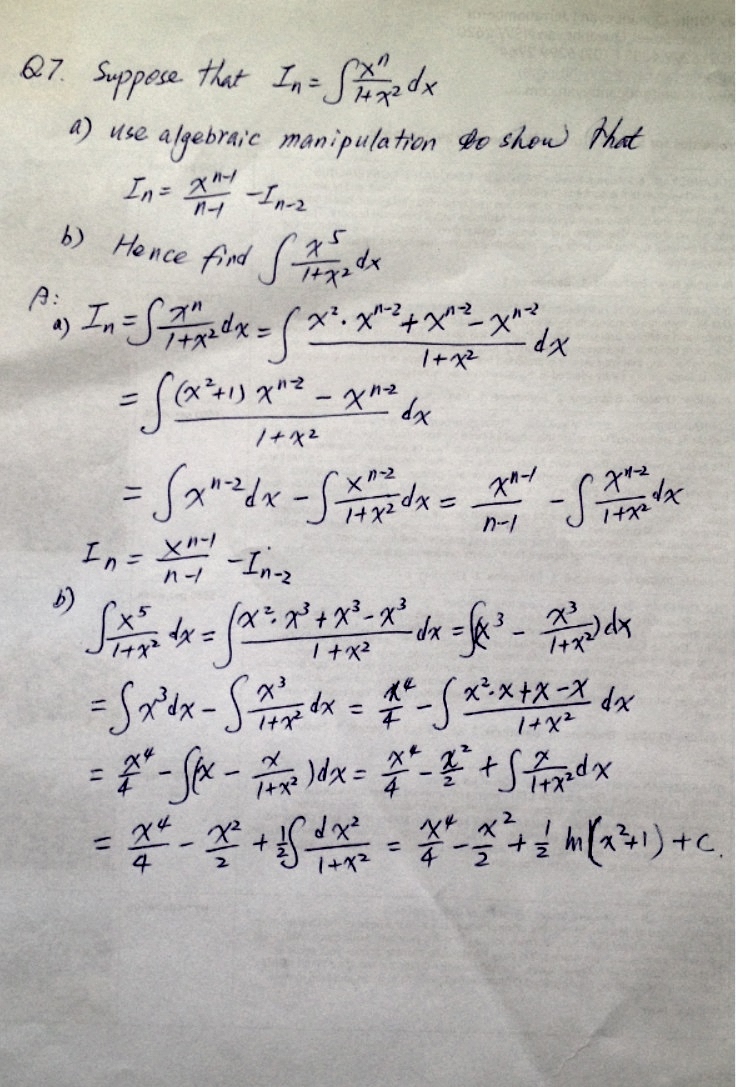 Q7. Suppose that Iₙ = ∫ xⁿ/(1+x²) dx
a) use algebraic manipulation to show that
Iₙ = xⁿ⁻¹/(n-1) - Iₙ₋₂
b) Hence find ∫ x⁵/(1+x²) dx
A:
a) Iₙ = ∫ xⁿ/(1+x²) dx = ∫ (x²·xⁿ⁻² + xⁿ⁻² - xⁿ⁻²)/(1+x²) dx
= ∫ ((x²+1) xⁿ⁻² - xⁿ⁻²)/(1+x²) dx
= ∫ xⁿ⁻² dx - ∫ xⁿ⁻²/(1+x²) dx = xⁿ⁻¹/(n-1) - ∫ xⁿ⁻²/(1+x²) dx
Iₙ = xⁿ⁻¹/(n-1) - Iₙ₋₂
b) ∫ x⁵/(1+x²) dx = ∫ (x²·x³ + x³ - x³)/(1+x²) dx = ∫(x³ - x³/(1+x²)) dx
= ∫ x³ dx - ∫ x³/(1+x²) dx = x⁴/4 - ∫ (x²·x + x - x)/(1+x²) dx
= x⁴/4 - ∫(x - x/(1+x²)) dx = x⁴/4 - x²/2 + ∫ x/(1+x²) dx
= x⁴/4 - x²/2 + 1/2 ∫ dx²/(1+x²) = x⁴/4 - x²/2 + 1/2 ln(x²+1) + C.